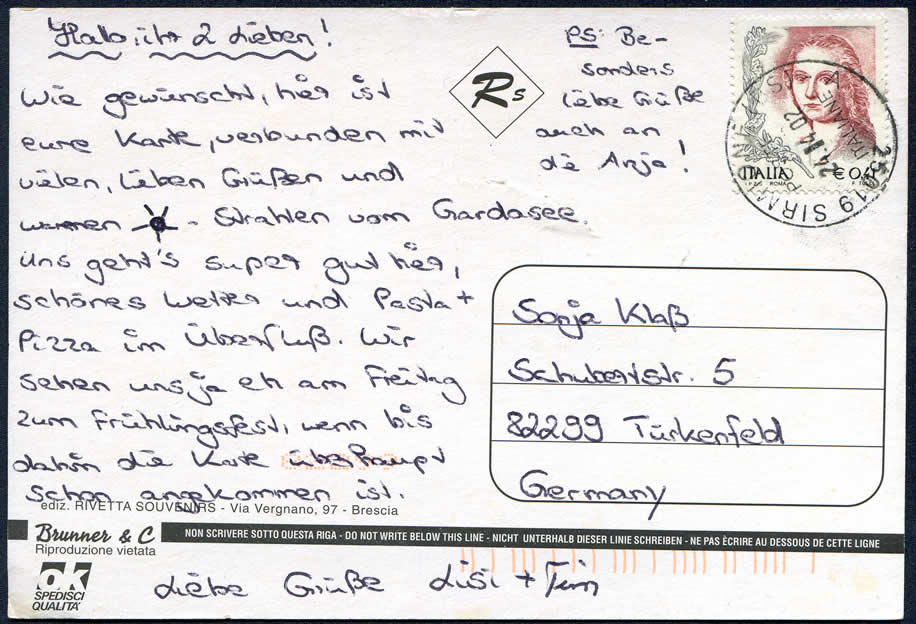 Hallo ihr 2 Lieben!
Wie gewünscht, hier ist
eure Karte, verbunden mit
vielen, lieben Grüßen und
warmen - Strahlen vom Gardasee.
Uns geht's super gut hier,
schönes Wetter und Pasta +
Pizza im Überfluß. Wir
sehen uns ja eh am Freitag
zum Frühlingsfest, wenn bis
dahin die Karte überhaupt
schon angekommen ist.
PS: Be-
sonders
liebe Grüße
auch an
die Anja!
Rs
ITALIA € 0,41
I.P.Z.S. ROMA
25019 SIRMIONE
24 04 02
Sonja Klaß
Schubertstr. 5
82299 Türkenfeld
Germany
ediz. RIVETTA SOUVENIRS - Via Vergnano, 97 - Brescia
Brunner & C
Riproduzione vietata
NON SCRIVERE SOTTO QUESTA RIGA - DO NOT WRITE BELOW THIS LINE - NICHT UNTERHALB DIESER LINIE SCHREIBEN - NE PAS ÈCRIRE AU DESSOUS DE CETTE LIGNE
ok
SPEDISCI
QUALITA'
Liebe Grüße Lisi + Tim